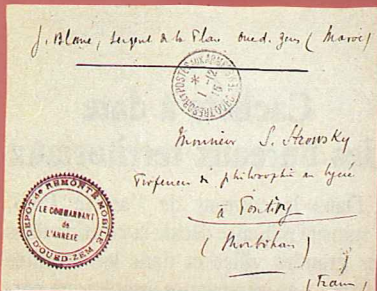 J. Blanc, Sergent de la Place Oued. Zem (Maroc)
TRESOR ET POSTES AUX ARMEES
1 - 12
15
Monsieur S. Strowsky
Professeur de philosophie au lycée
à Pontivy
(Morbihan)
(France)
DEPOT de REMONTE MOBILE
LE COMMANDANT
de
L'ANNEXE
OUED-ZEM